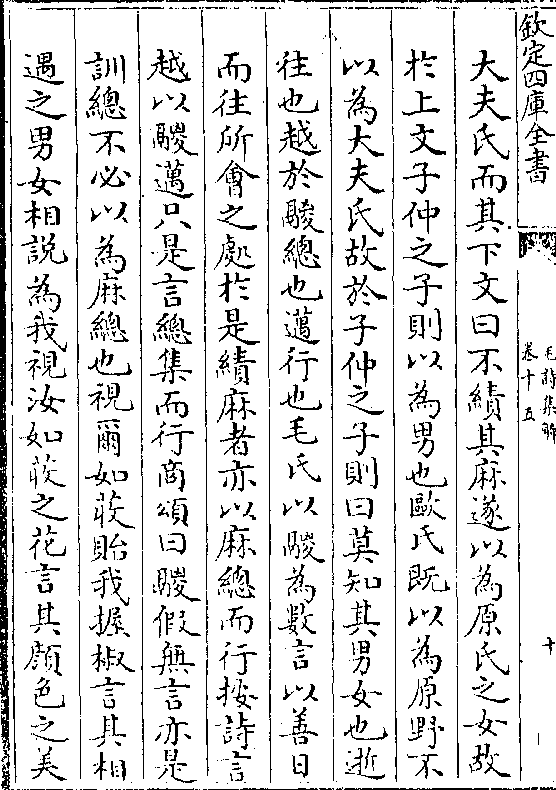 欽定四庫全書
毛詩集解
卷十五
十
大夫氏而其下文曰不績其麻遂以為原氏之女故
於上文子仲之子則以為男也歐氏既以為原野不
以為大夫氏故於子仲之子則曰莫知其男女也逝
往也越於騣總也邁行也毛氏以騣為數言以善日
而往所會之處於是績麻者亦以麻總而行按詩言
越以騣邁只是言總集而行商頌曰騣假無言亦是
訓總不必以為麻總也視爾如荍貽我握椒言其相
遇之男女相說為我視汝如荍之花言其顔色之美